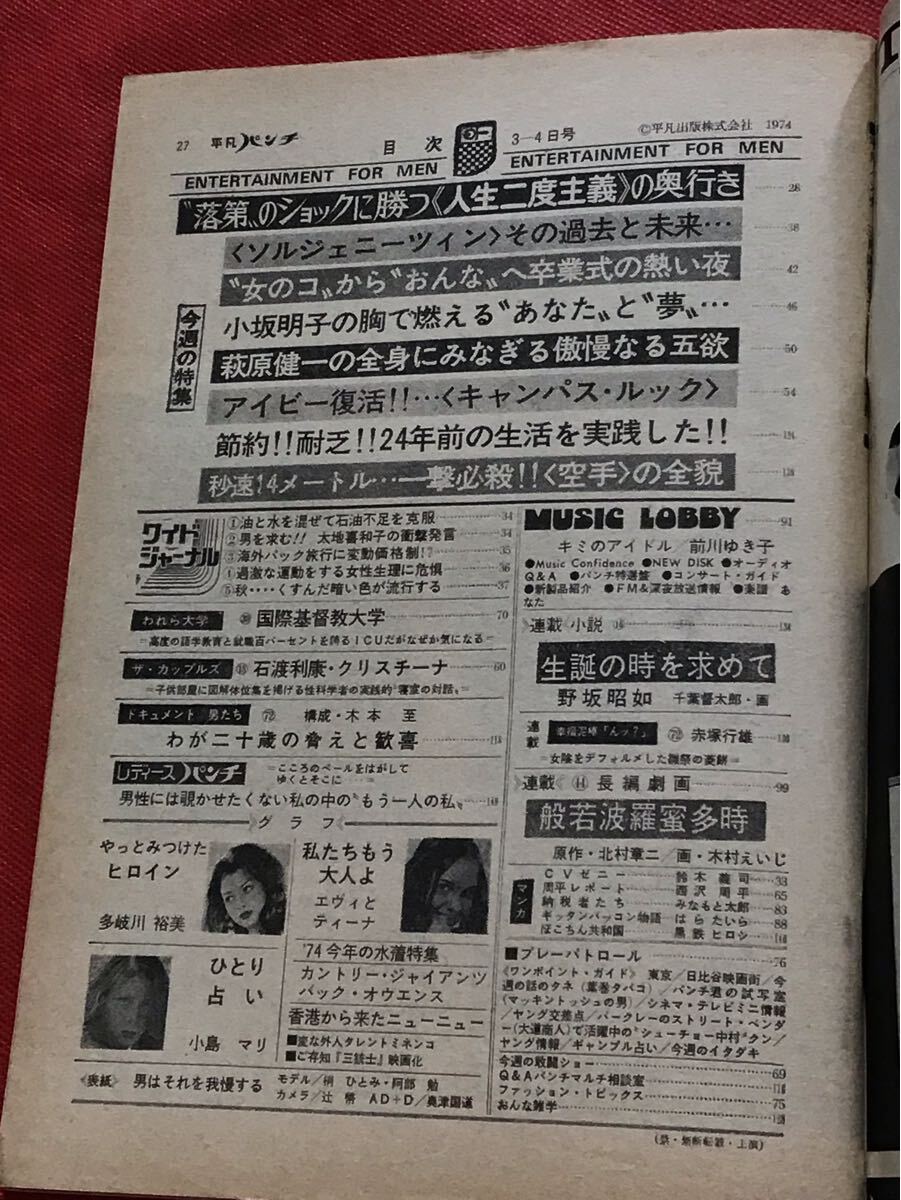 27 平凡パンチ 目次 3-4日号 ©平凡出版株式会社 1974
ENTERTAINMENT FOR MEN ENTERTAINMENT FOR MEN
今週の特集
〝落第〟のショックに勝つ《人生二度主義》の奥行き……28
〈ソルジェニーツィン〉その過去と未来……38
〝女のコ〟から〝おんな〟へ卒業式の熱い夜……42
小坂明子の胸で燃える〝あなた〟と〝夢〟……46
萩原健一の全身にみなぎる傲慢なる五欲……50
アイビー復活!!…〈キャンパス・ルック〉……54
節約!!耐乏!!24年前の生活を実践した!!
秒速14メートル…一撃必殺!!〈空手〉の全貌
ワイドジャーナル
①油と水を混ぜて石油不足を克服……34
②男を求む!! 太地喜和子の衝撃発言……34
③海外パック旅行に変動価格制!?……35
④過激な運動をする女性生理に危惧……36
⑤秋‥‥くすんだ暗い色が流行する……37
われら大学 国際基督教大学……70
=高度の語学教育と就職百パーセントを誇るICUだがなぜか気になる=
ザ・カップルズ ⑱ 石渡利康・クリスチーナ……60
=子供部屋に図解体位集を掲げる性科学者の実践的〝寝室の対話〟=
ドキュメント 男たち 72 構成・木本 至
わが二十歳の脅えと歓喜……118
レディースパンチ =こころのベールをはがして
ゆくとそこに……=
男性には覗かせたくない私の中の〝もう一人の私〟
グラフ
やっとみつけた
ヒロイン
多岐川 裕美
私たちもう
大人よ
エヴィと
ティーナ
ひとり
占い
小島 マリ
'74今年の水着特集
カントリー・ジャイアンツ
バック・オウエンス
香港から来たニューニュー
■変な外人タレントミネンコ
■ご存知『三銃士』映画化
《表紙》 男はそれを我慢する モデル/梢 ひとみ・阿部 勉
カメラ/辻 AD+D/奥津国道
MUSIC LOBBY……91
キミのアイドル/前川ゆき子
●Music Confidence ●NEW DISK ●オーディオ
Q&A ●パンチ特選盤 ●コンサート・ガイド
●新製品紹介 ●FM&深夜放送情報 ●楽譜 あ
なた
連載 小説
生誕の時を求めて
野坂昭如 千葉督太郎・画
連載 幸福泥棒「んッ?」 72 赤塚行雄
=女陰をデフォルメした雛祭の菱餅=
連載 44 長編劇画……99
般若波羅蜜多時
原作・北村章二/画・木村えいじ
マンガ
CVゼニー……鈴木義司……33
周平レポート……西沢周平……65
納税者たち……みなもと太郎……83
ギッタンバッコン物語……はらたいら……88
ほこちん共和国……黒鉄ヒロシ
■プレーパトロール……76
《ワンポイント・ガイド》 東京/日比谷映画街/今
週の話のタネ(葉巻タバコ)/パンチ君の試写室
(マッキントッシュの男)/シネマ・テレビミニ情報
/ヤング交差点/バークレーのストリート・ベンダ
ー(大道商人)で活躍中の〝シューチョー中村〟クン/
ヤング情報/ギャンブル占い/今週のイタダキ
今週の敢闘ショー……69
Q&Aパンチマルチ相談室
ファッション・トピックス……75
おんな雑学
(禁・無断転載・上演)